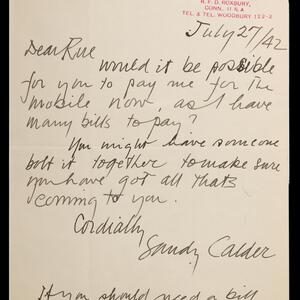 R. F. D. ROXBURY,
CONN. U S A
TEL. & TEL. WOODBURY 122-2
July 27/42
Dear Rue
would it be possible
for you to pay me for the
mobile now, as I have
many bills to pay?
You might have someone
bolt it together to make sure
you have got all thats
coming to you.
Cordially
Sandy Calder
If you should need a bill